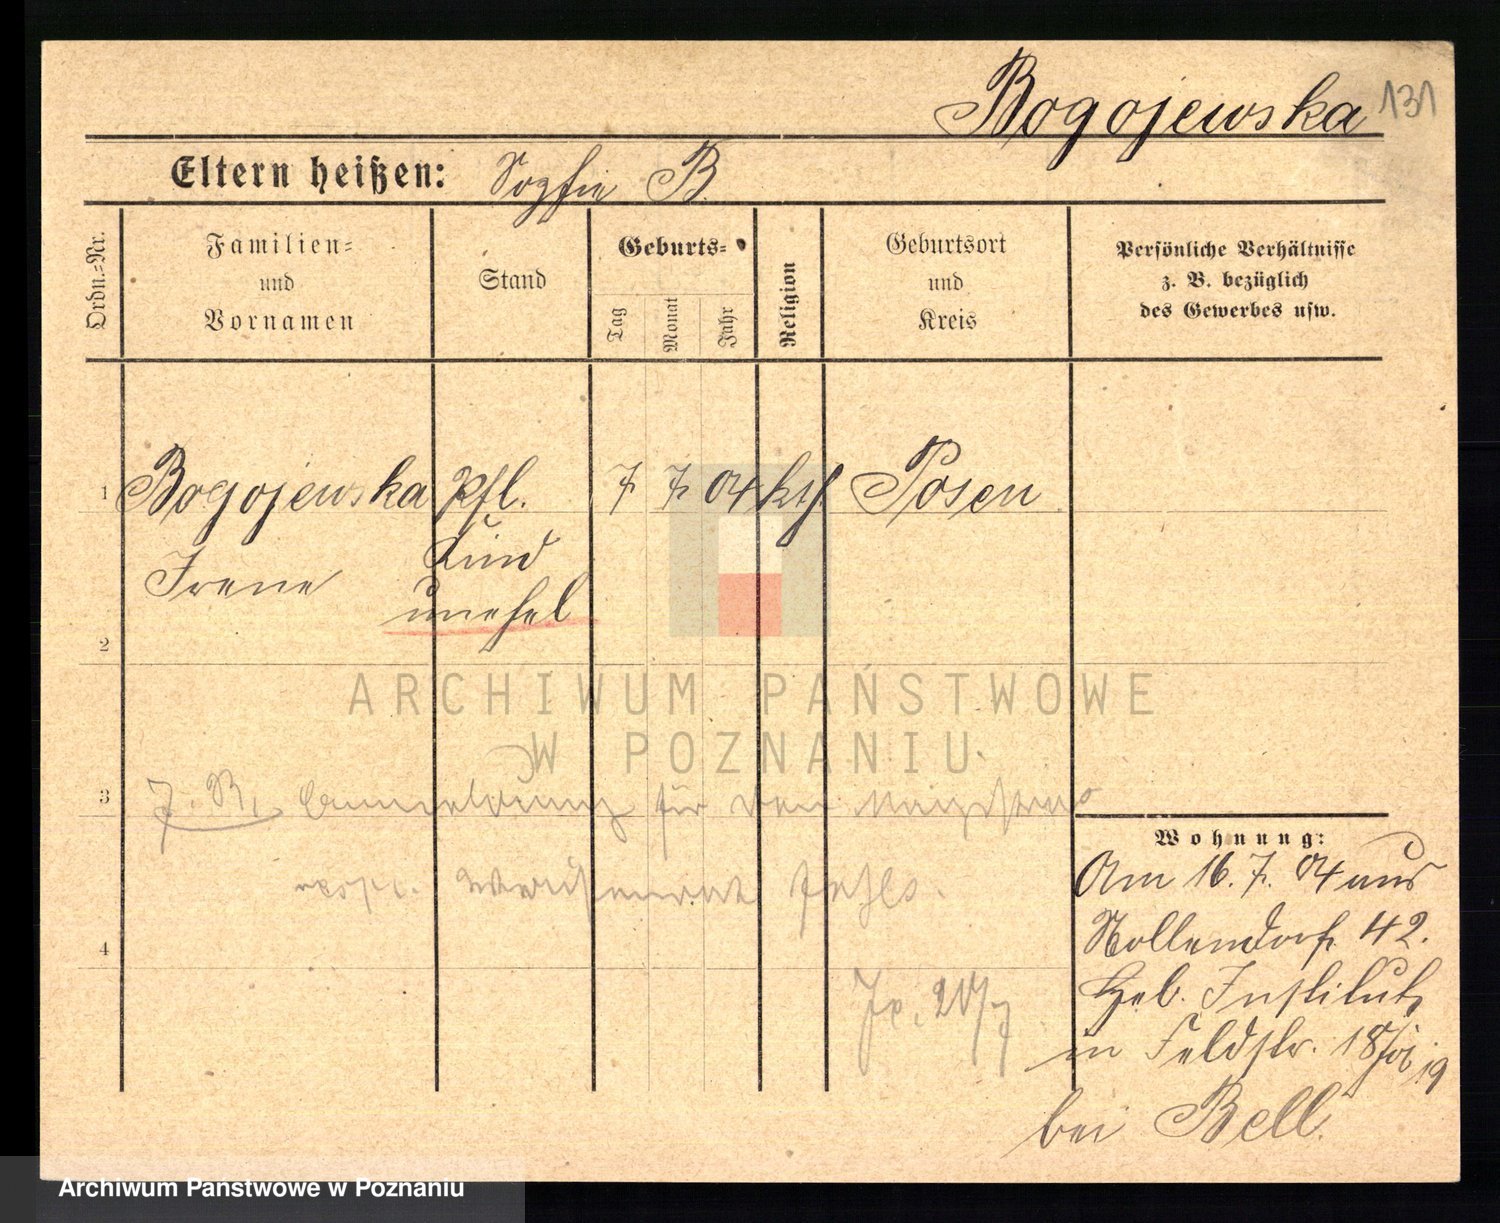 Bogojewska 131
Eltern heißen: Sophie B.
Ordn.=Nr.
Familien=
und
Vornamen
Stand
Geburts=
Tag
Monat
Jahr
Religion
Geburtsort
und
Kreis
Persönliche Verhältnisse
z. B. bezüglich
des Gewerbes usw.
1 Bogojewska Pfl. 7. 7. 04 kth. Posen
Kind
Irene
unehel
2
ARCHIWUM PAŃSTWOWE
W POZNANIU
3 für den
Wohnung:
Am 16. 7. 04 aus
Nollendorf. 42.
Heb. Institut
4
in Feldstr. 18
bei Bell.
Archiwum Państwowe w Poznaniu